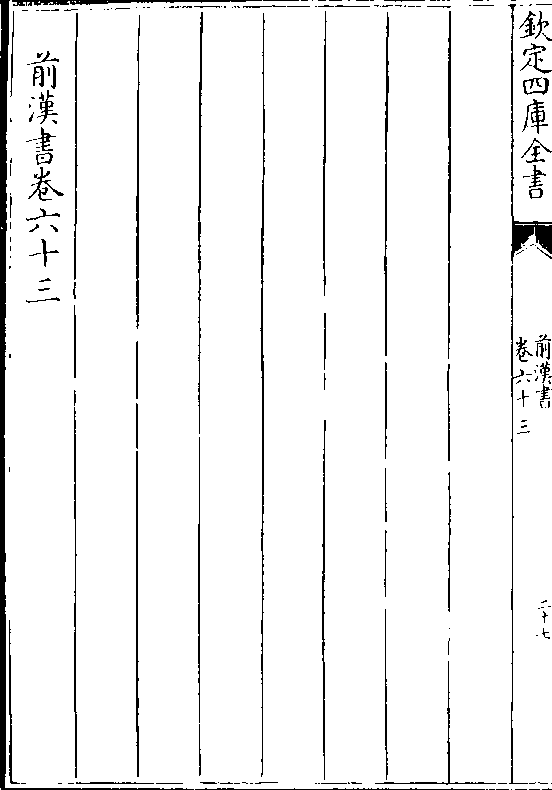 欽定四庫全書
前漢書
卷六十三
二十七
前漢書卷六十三